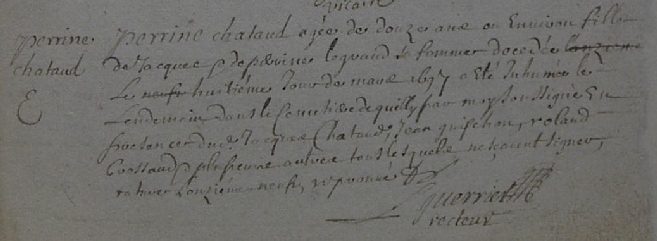 vicaire
perrine chataud
perrine chataud agée de douze ans ou Environ fille
de Jacques & de perrine legrand sa femme decedée
Le neufe huitieme Jour de mars 1697 a Eté Inhumée le
Lendemain dans le Cemetiere de quilly par moy soussigné En
presence dud. Jacques Chataud, Jean guischon, roland
Cossaud & plusieurs autres tous lesquels ne sçavent signer,
raturé neufe, approuvé
guerriet
recteur